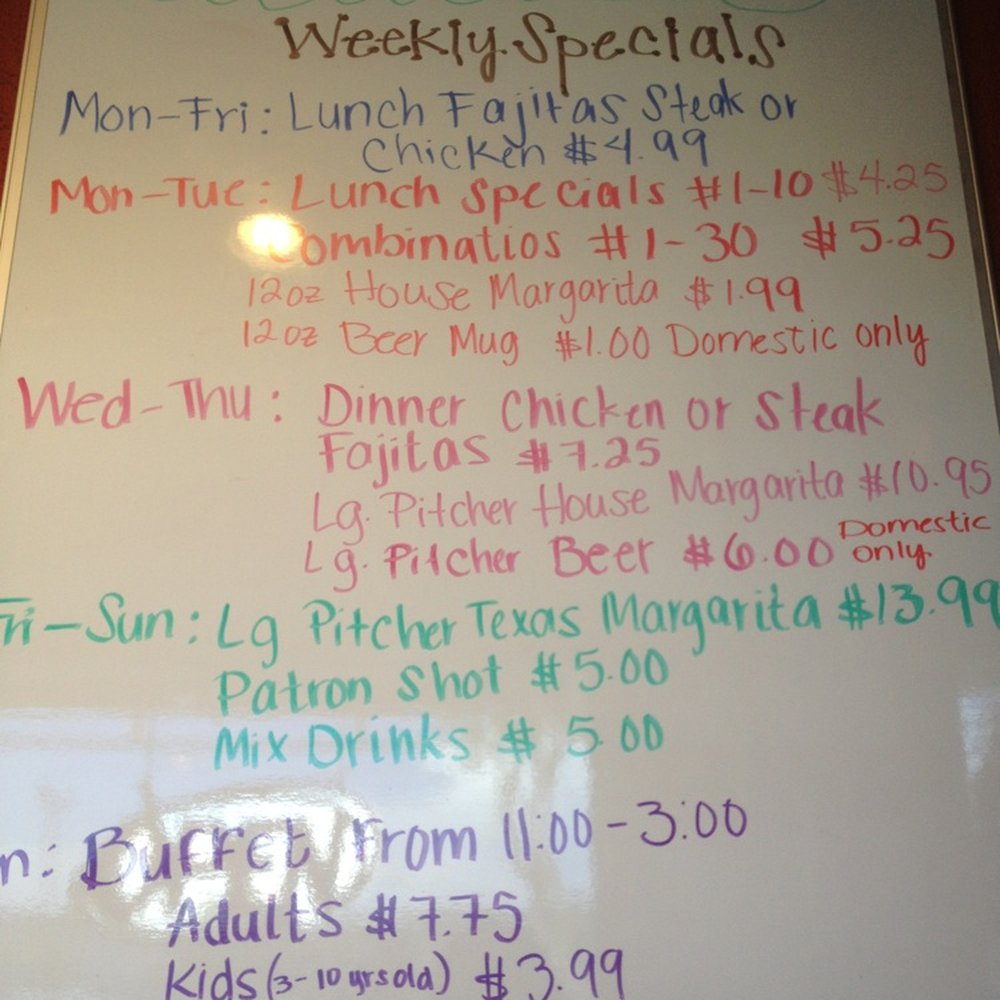 Weekly Specials
Mon-Fri: Lunch Fajitas Steak or
Chicken $4.99
Mon-Tue: Lunch Specials #1-10 $4.25
Combinatios #1-30 $5.25
12oz House Margarita $1.99
12oz Beer Mug $1.00 Domestic only
Wed-Thu: Dinner Chicken or Steak
Fajitas $7.25
Lg. Pitcher House Margarita $10.95
Lg. Pitcher Beer $6.00 Domestic only
Fri-Sun: Lg Pitcher Texas Margarita $13.99
Patron Shot $5.00
Mix Drinks $5.00
n: Buffet From 11:00-3:00
Adults $7.75
Kids (3-10 yrs old) $3.99